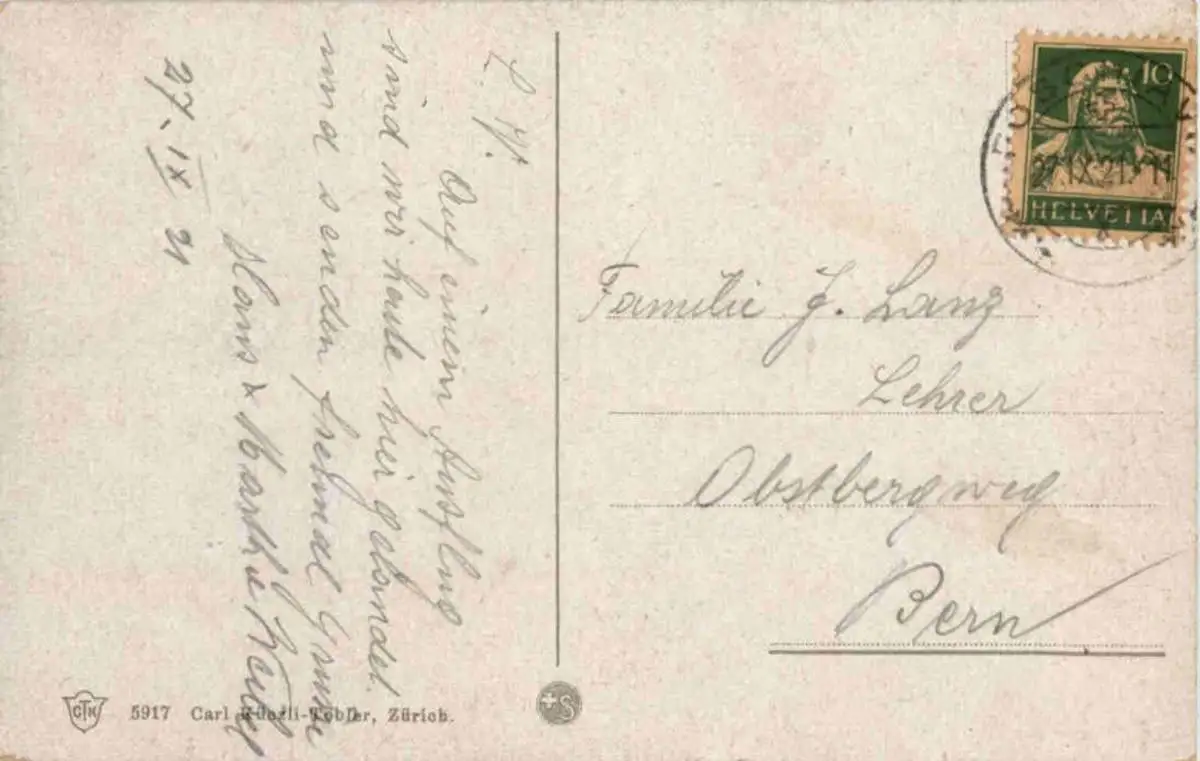 L. H.
Auf einem Ausflug
sind wir heute hier gelandet
und senden freundl. Grüsse
Hans & Marthe
27. IX 21
10
27.IX.21
HELVETIA
Familie J. Lanz
Lehrer
Obstbergweg
Bern
CTK
5917 Carl Künzli-Tobler, Zürich.
S